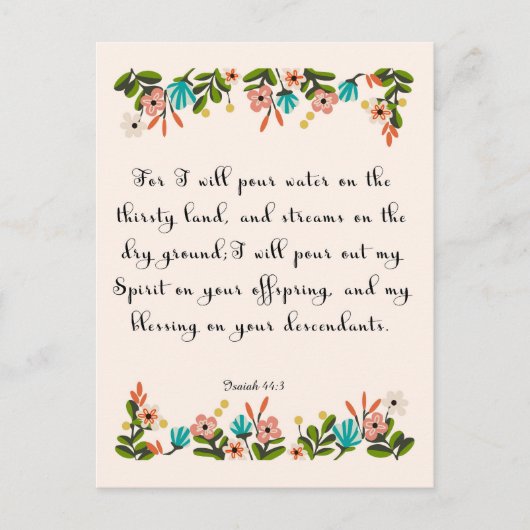 For I will pour water on the
thirsty land, and streams on the
dry ground;I will pour out my
Spirit on your offspring, and my
blessing on your descendants.
Isaiah 44:3